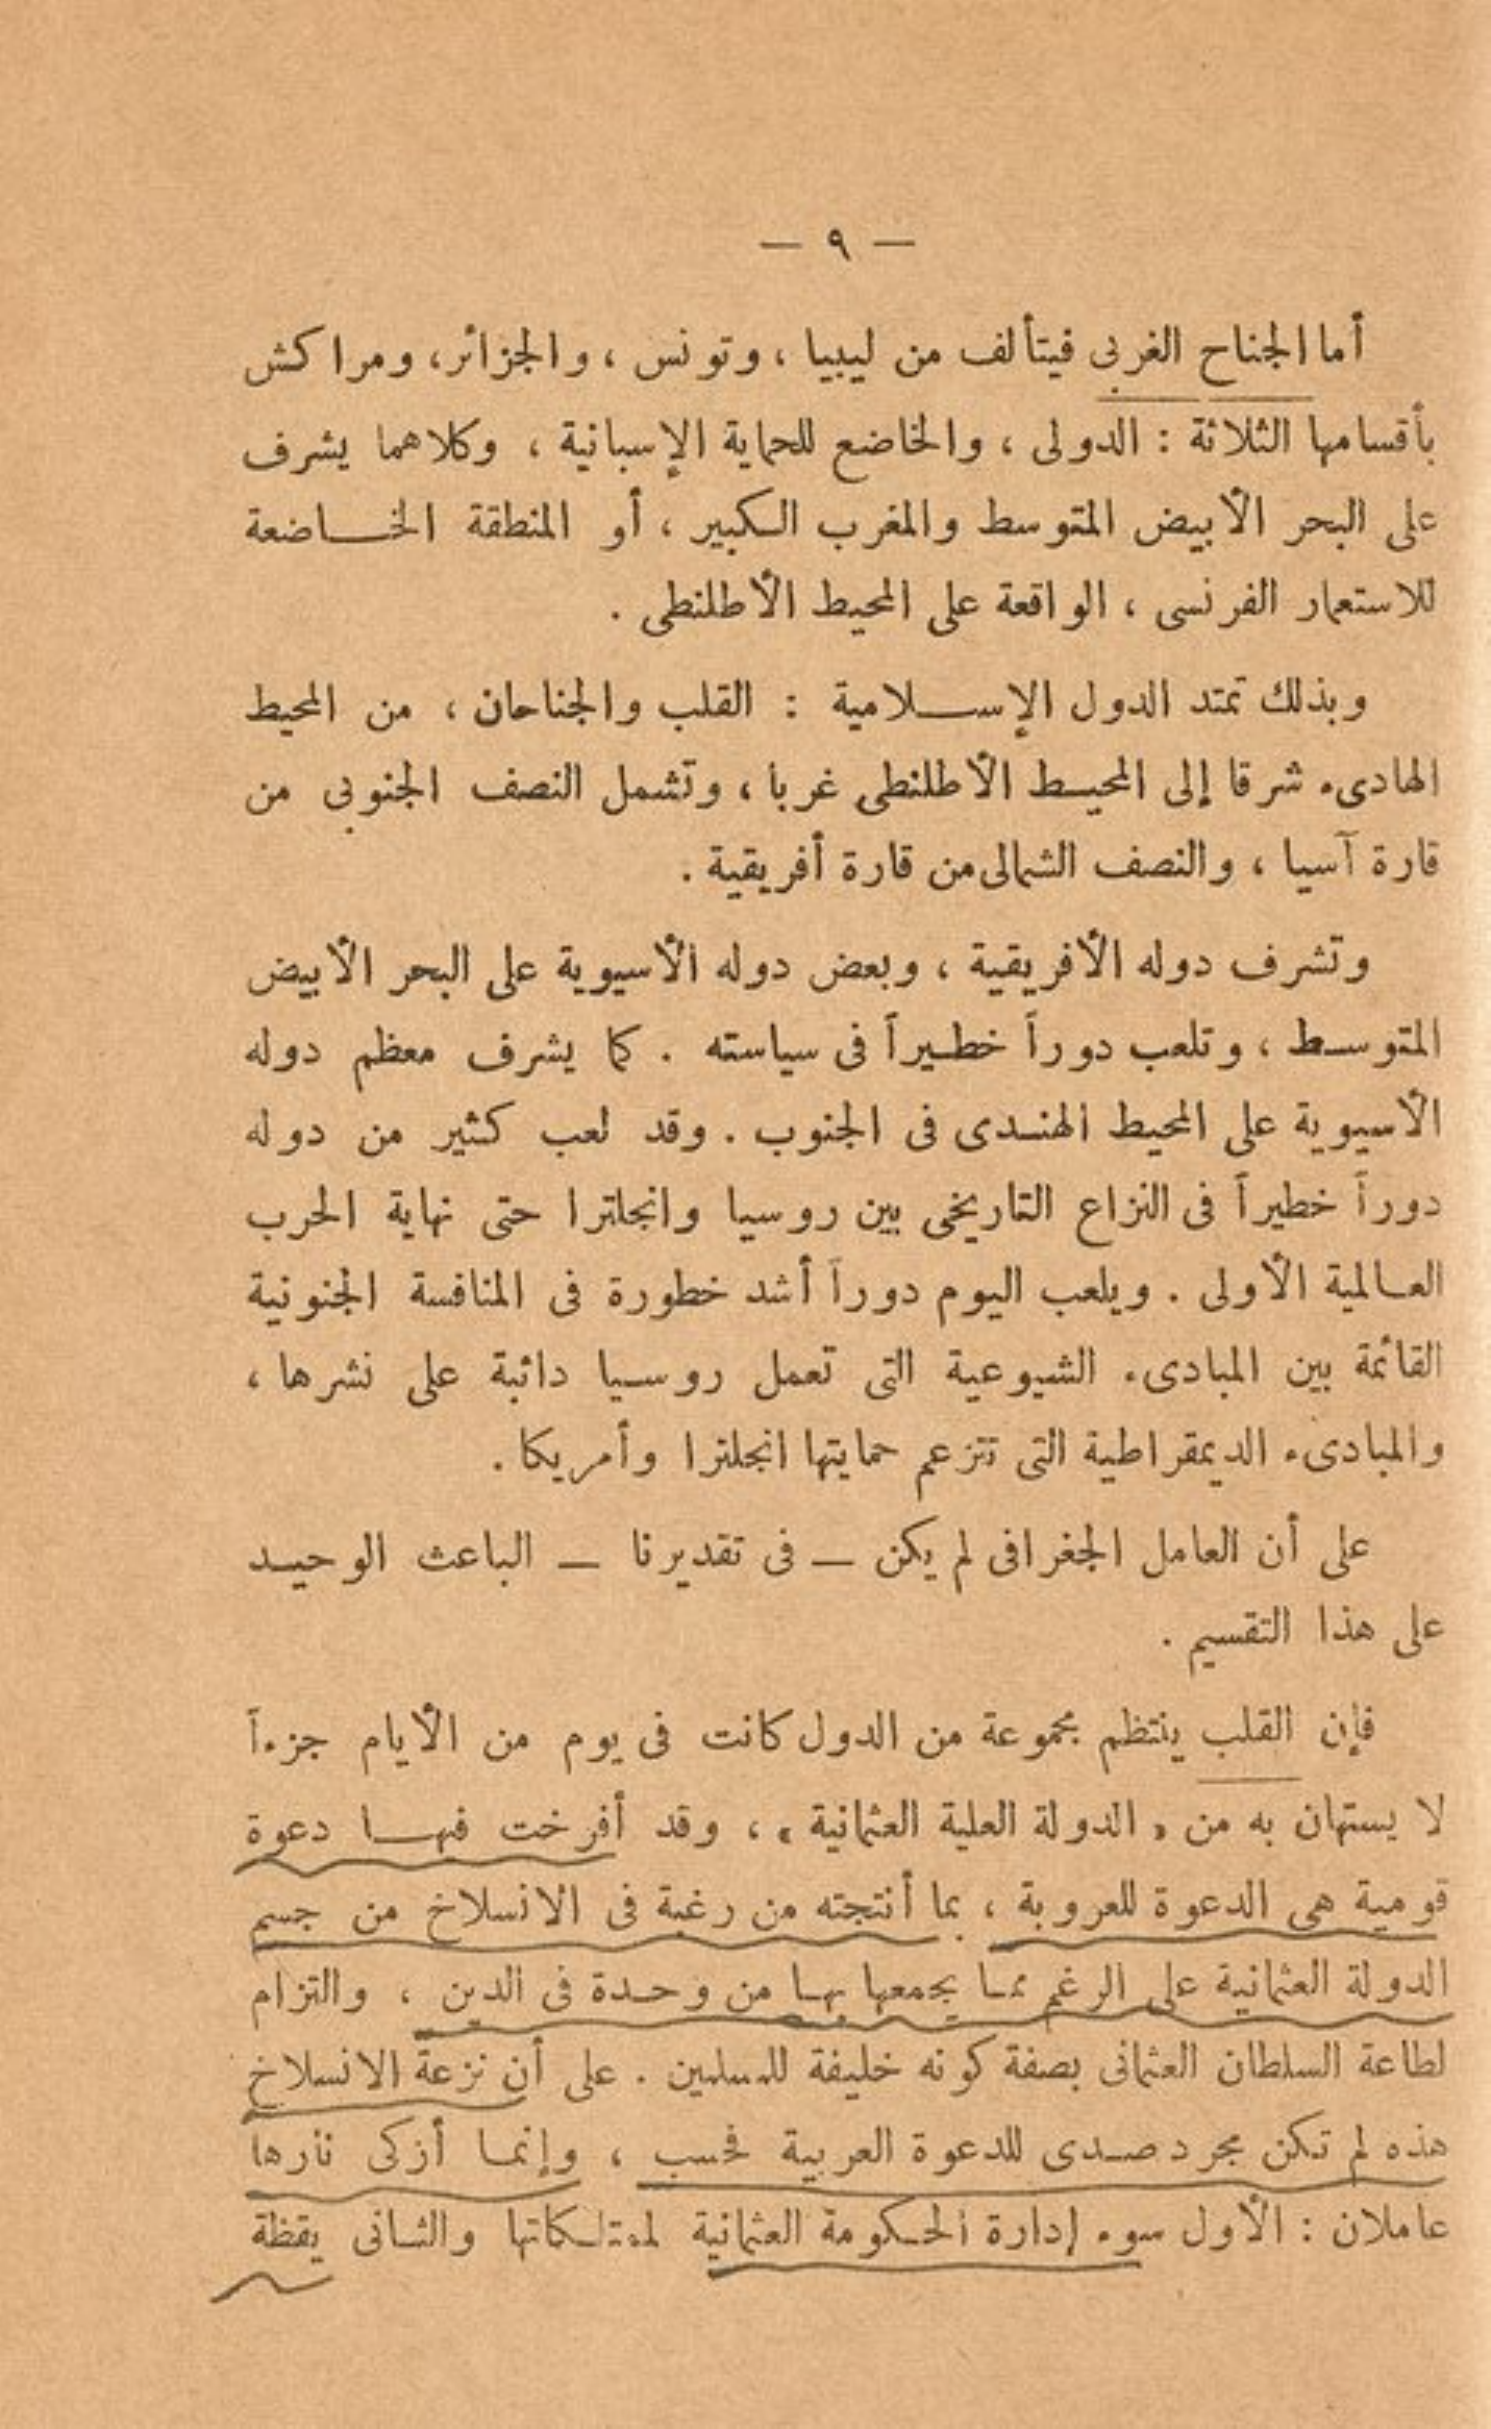 — ٩ —
أما الجناح الغربى فيتألف من ليبيا ، وتونس ، والجزائر، ومراكش
بأقسامها الثلاثة : الدولى ، والخاضع للحماية الإسبانية ، وكلاهما يشرف
على البحر الأبيض المتوسط والمغرب الكبير ، أو المنطقة الخاضعة
للاستعمار الفرنسى ، الواقعة على المحيط الأطلنطى .
وبذلك تمتد الدول الإسلامية : القلب والجناحان ، من المحيط
الهادىء شرقا إلى المحيط الأطلنطى غربا ، وتشمل النصف الجنوبى من
قارة آسيا ، والنصف الشمالى من قارة أفريقية .
وتشرف دوله الأفريقية ، وبعض دوله الأسيوية على البحر الأبيض
المتوسط ، وتلعب دوراً خطيراً فى سياسته . كما يشرف معظم دوله
الأسيوية على المحيط الهندى فى الجنوب . وقد لعب كثير من دوله
دوراً خطيراً فى النزاع التاريخى بين روسيا وانجلترا حتى نهاية الحرب
العالمية الأولى . ويلعب اليوم دوراً أشد خطورة فى المنافسة الجنونية
القائمة بين المبادىء الشيوعية التى تعمل روسيا دائبة على نشرها ،
والمبادىء الديمقراطية التى تتزعم حمايتها انجلترا وأمريكا .
على أن العامل الجغرافى لم يكن — فى تقديرنا — الباعث الوحيد
على هذا التقسيم .
فإن القلب ينتظم مجموعة من الدول كانت فى يوم من الأيام جزءاً
لا يستهان به من « الدولة العلية العثمانية » ، وقد أفرخت فيها دعوة
قومية هى الدعوة للعروبة ، بما أنتجته من رغبة فى الانسلاخ من جسم
الدولة العثمانية على الرغم مما يجمعها بها من وحدة فى الدين ، والتزام
لطاعة السلطان العثمانى بصفة كونه خليفة للمسلمين . على أن نزعة الانسلاخ
هذه لم تكن مجرد صدى للدعوة العربية فحسب ، وإنما أزكى نارها
عاملان : الأول سوء إدارة الحكومة العثمانية لممتلكاتها والثانى يقظة